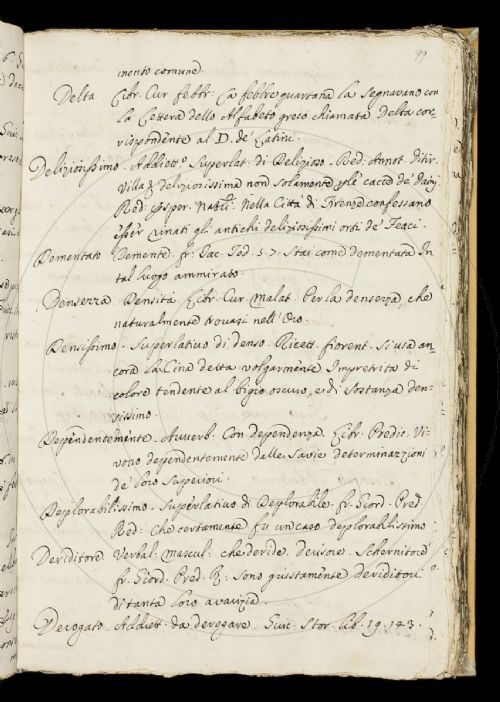 99
mento comune.
Delta Libr. Cur. febbr: La febbre quartana la segnavano con
la lettera dello Alfabeto greco chiamata Delta cor-
rispondente al D. de' Latini.
Delizionissimo. Addiett.o Superlat: di Delizioso. Red: Annot. Ditir.
Villa deliziosissima non solamente caccie de' Daini
Red: Esper. Nat.li. Nella Città di Firenze confessano
esser quasi gli antichi deliziosissimi orti de' Feaci.
Dementato Demente. fr: Jac: Tod. 5. 7. Stai come dementata In
tal luogo ammirato.
Denserza Densità Libr. Cur. Malat. Per la denserza, che
naturalmente trovasi nell' Oro.
Densissimo. Superlativo di denso. Ricett. fiorent. Si usa an-
cora la Cina detta volgarmente Impretrita di
colore tendente al bigio oscuro, e di sostanza den-
sissimo.
Dependentemente. Avverb. Con dependenza. Libr. Predic. Vi-
vono dependentemente dalle savie determinazzioni
de' loro Superiori.
Deplorabilissimo. Superlativo di Deplorabile fr. Giord. Pred.
Red: Che certamente fu un caso deplorabilissimo
Deriditore Verbal. mascul: che deride, derisore. Schernitore
fr. Giord. Pred. R: Sono giustamente deriditori
di tanta loro avarizia.
Derogato. Addiett. da derogare. Guic. Stor. lib. 19. 143.